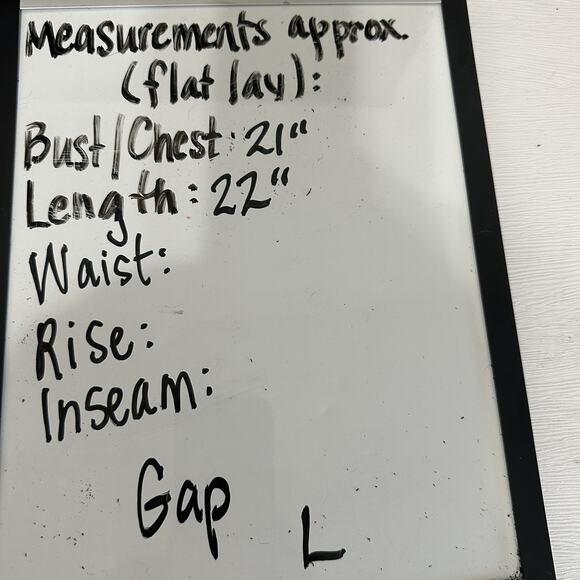 Measurements approx.
(flat lay):
Bust/Chest: 21"
Length: 22"
Waist:
Rise:
Inseam:
Gap
L